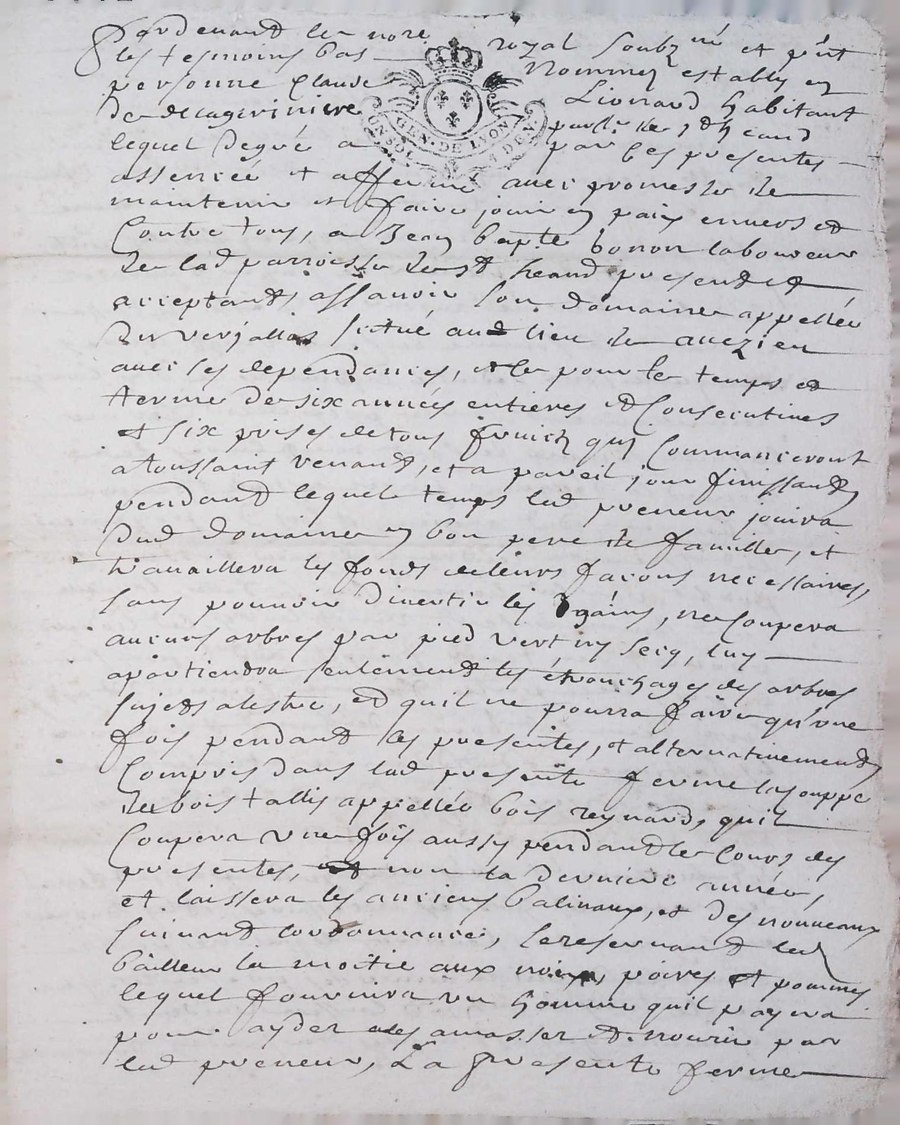 Pardevant le no.re royal soubz.né et p'nt
les tesmoins bas nommez estably en
personne Claude Lionard habitant
GEN. DE LYON
lequel de gré a par ces presentes
assencée et affermé avec promesse de
maintenir et faire jouir en paix envers et
Contre tous, a Jean bapte bonon laboureur
de lad parroisse de st heand present et
acceptant assavoir son domaine appellée
du verjallas situé aud lieu de avezieu
avec ses dependances, et ce pour le temps et
terme de six années entieres et Consecutives
et six prises de tous fruicts qui Commanceront
a toussaint venant, et a pareil jour finissants
pendant lequel temps led preneur jouira
dud domaine en bon pere de famille, et
travaillera les fonds de leurs facons necessaires,
sans pouvoir divertir les engains, ne coupera
aucuns arbres par pied vert ny secq, luy
apartiendra seulement les étronchages des arbres
sujets a lestre, et quil ne pourra faire qu'une
fois pendant les presentes, et alternativement
Compris dans lad presente ferme la couppe
de bois tallis appellée bois reynard, quil
Coupera une fois aussy pendant le cours des
presentes, et non la derniere année,
et laissera les anciens balivaux, et des nouveaux
suivant lordonnance, se reservant led
bailleur la moitie aux noix, poires et pommes
lequel fournira un homme quil payera
pour ayder a les amasser et nourir par
led preneur, La presente ferme